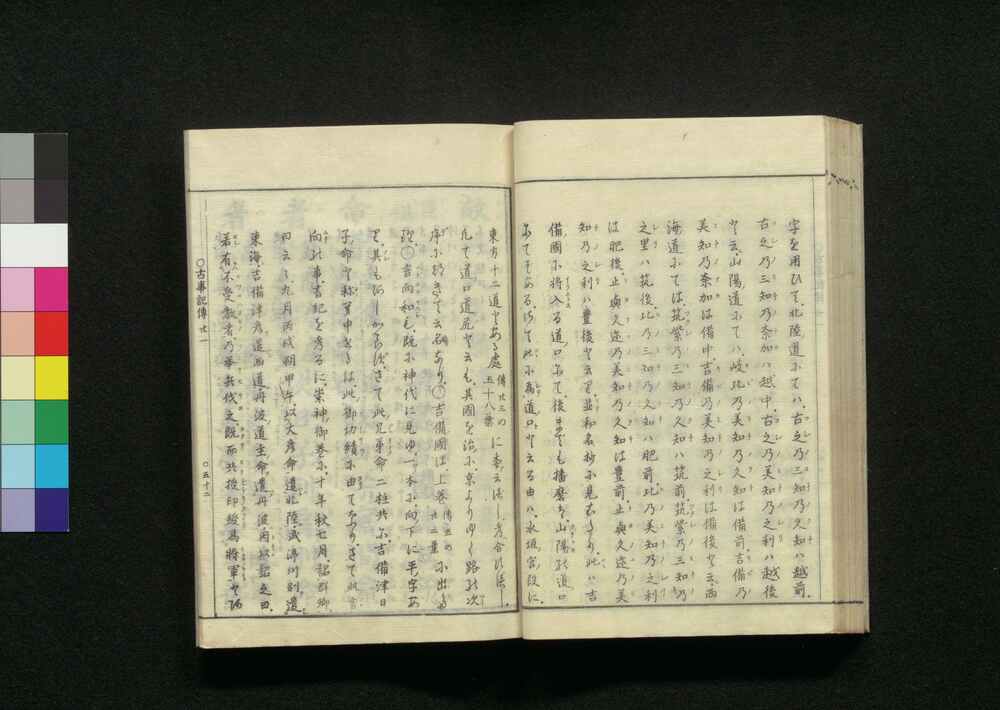 字を用ひて、北陸道にては、古之乃三知乃久知ハ越前、
古之乃三知乃奈加ハ越中、古之乃美知乃之利ハ越後
と云、山陽道にてハ、岐比乃美知乃久知は備前、吉備乃
美知乃奈加は備中、吉備乃美知乃之利は備後と云、西
海道にては、筑紫乃三知乃久知ハ筑前、筑紫乃三知乃
之里ハ筑後、比乃三知乃久知ハ肥前、比乃美知乃之利
は肥後、止與久迩乃美知乃久知は豊前、止與久迩乃美
知乃之利ハ豊後と云て、並和名抄に見えたり、此ハ吉
備國に将入る道口にて、後までも播磨ぞ山陽の道口
にてそある、さて此に為道口と云る由ハ、水垣宮段に、
東方十二道とある處 傳廿三の五十八葉 に委云べし、考合すべし、
凡て道口道尻と云も、其國を治に、京よりゆく路の次
序に就きて云名なり、○吉備國は、上巻 傳五の廿二葉 に出
○言向和も、既に神代に見ゆ、一本に向下に平字あ
其もあしからず、さて此兄弟命二柱共に、吉備津日
子命と称へ申せるは、此御功績に由てなり、さて此言
向の事、書紀を考るに、崇神御巻に、十年秋七月、詔群卿
曰云々、九月丙戌朔甲午、以大彦命遣北陸、武渟川別遣
東海、吉備津彦遣西道、丹波道主命遣丹波、因以詔之曰、
若有不受教者乃挙兵伐之、既而共授印綬為将軍と
○古事記傳廿一
○五十二